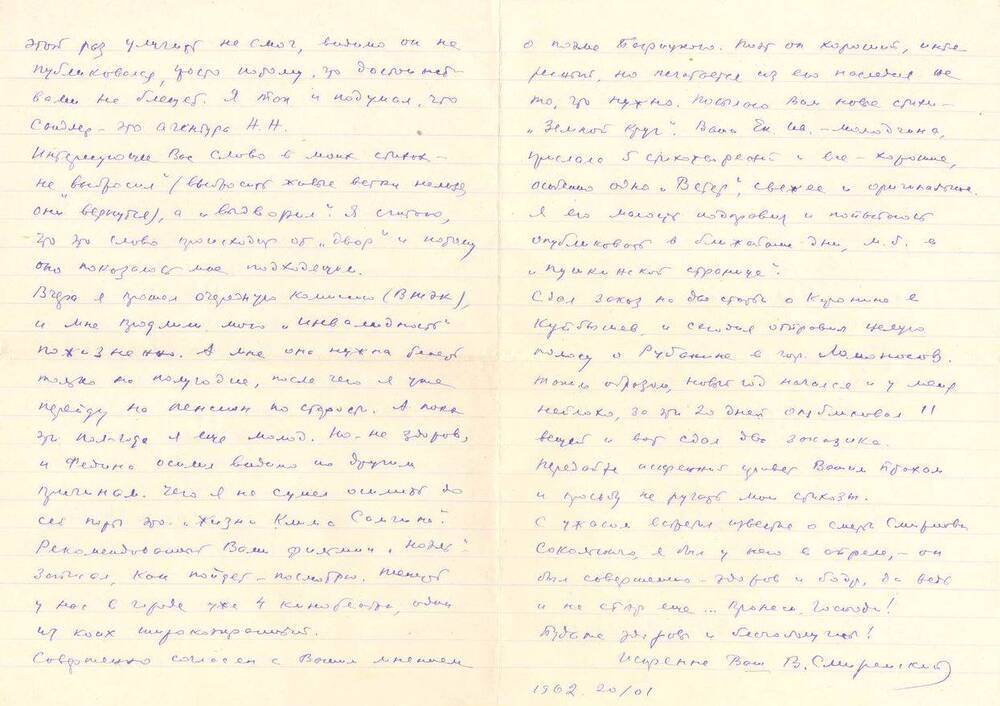 этот раз уличить не смог, видимо он не
публиковался, просто потому, что достоинст-
вами не блещет. Я так и подумал, что
Сандлер - это агентура Н.Н.
Интересующее Вас слово в моих стихах -
не "выбросил" (выбросить живые ветки нельзя,
они вернутся), а "выдворил". Я считаю,
что это слово происходит от "двор" и потому
оно показалось мне подходящим.
Вчера я прошел очередную комиссию (ВТЭК),
и мне продлили мою "инвалидность"
пожизненно. А мне она нужна будет
только на полугодие, после чего я уже
перейду на пенсион по старости. А пока
эти полгода я еще молод. Но - не здоров,
и Федина осилил видимо по другим
причинам. Чего я не сумел осилить до
сей поры это "Жизни Клима Самгина".
Рекомендованный Вами фильм
записал, как пойдет - посмотрю. Теперь
у нас в городе уже 4 кинотеатра, один
из коих широкоэкранный.
Совершенно согласен с Вашим мнением
о поэме Багрицкого. Поэт он хороший, инте-
ресный, но печатается из его наследия не
то, что нужно. Посылаю Вам новые стихи -
"Земной круг". Ваша Ек. Ив. - молодчина,
прислала 5 стихотворений и все - хорошие,
особенно одно "Ветер", свежее и оригинальное.
Я его малость подправил и попытаюсь
опубликовать в ближайшие дни, м.б. в
"Пушкинской странице".
Сдал заказ на две статьи о Куприне в
Куйбышев, и сегодня отправил целую
полосу о Рубакине в гор. Ломоносов.
Таким образом, новый год начался и у меня
неплохо, за эти 20 дней опубликовал 11
вещей и вот сдал два заказика.
Передайте искренний привет Вашим
и просьбу не ругать мои стихозы.
С ужасом встретил известие о смерти Смирнова
Сокольского, я был у него в апреле, - он
был совершенно здоров и бодр, да ведь
и не стар еще ... Пронеси, Господи!
Будьте здоровы и благополучны!
Искренне Ваш В. Смиренский
1962. 20/01